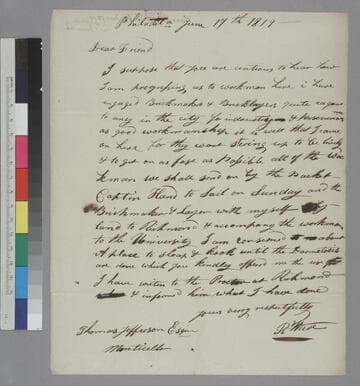 Philada June 17th 1819
Dear Friend
I suppose that you are anxious to hear how
I am progressing as to workman here i have
engaged Brickmaker & Bricklayers quite equal
to any in the city for industry & perseverance
as good workmanship it is well that I came
on here for they want stiring up to be lively
& to get on as fast as Possible all of the Wor
kman we shall send on by the Packet
Captin Hand to Sail on Sunday and the
Brickmaker & Layer with myself by
land to Richmond & accompany the workmen
to the University I am concerned about
A place to Sleep & Cook until the
are done which you kindly offered me the use of
I have writen to the Proctor at Richmond
& informed him what I have done
yours very respectfully
Thomas Jefferson Esqr
Monticello